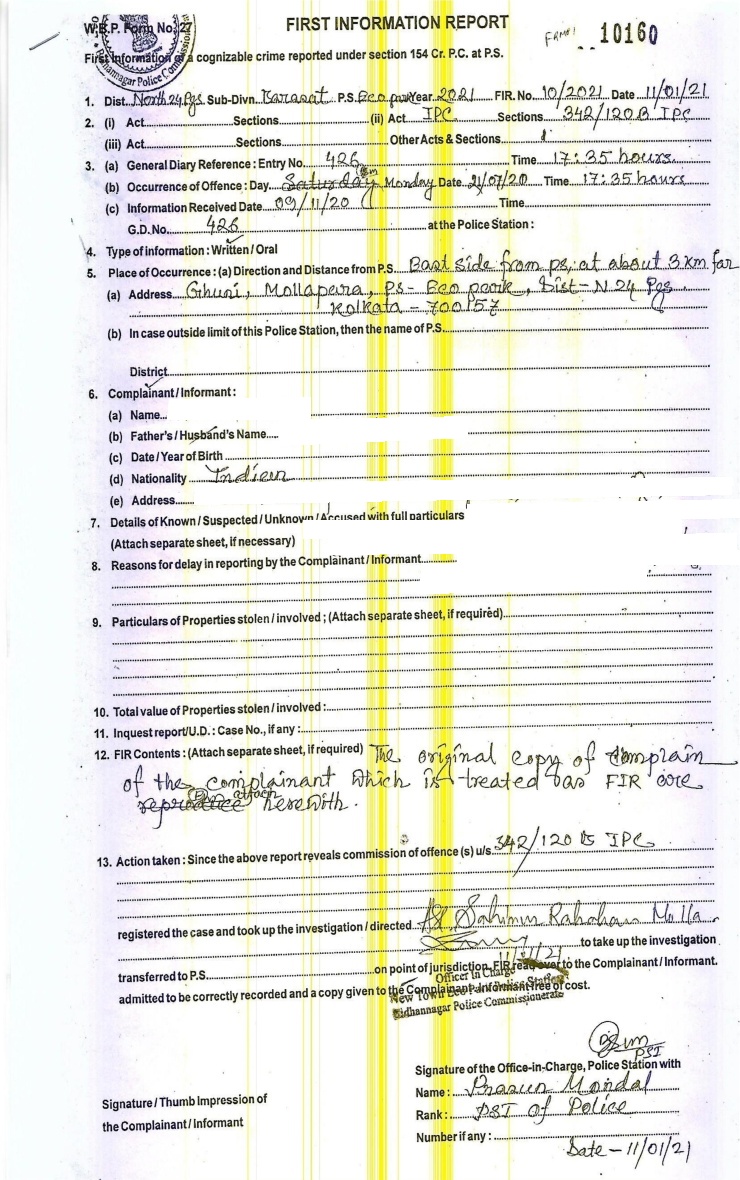 W.B.P. Form No. 27
FIRST INFORMATION REPORT
10160
First Information of a cognizable crime reported under section 154 Cr. P.C. at P.S.
1. Dist. North 24 Pgs Sub-Divn. Barasat P.S. Eco park Year 2021 FIR. No. 10/2021 Date 11/01/21
2. (i) Act Sections (ii) Act IPC Sections 342/120B IPC
(iii) Act Sections Other Acts & Sections
3. (a) General Diary Reference : Entry No. 426 Time 17:35 hours
(b) Occurrence of Offence : Day Saturday Monday Date 21/07/20 Time 17:35 hours
(c) Information Received Date 09/11/20 Time
G.D. No. 426 at the Police Station :
4. Type of information : Written / Oral
5. Place of Occurrence : (a) Direction and Distance from P.S. East side from ps, at about 3 km far
(a) Address Ghuni, Mollapara, Ps- Eco park, Dist-N 24 Pgs
Kolkata - 700157
(b) In case outside limit of this Police Station, then the name of P.S.
District
6. Complainant / Informant :
(a) Name
(b) Father's / Husband's Name
(c) Date / Year of Birth
(d) Nationality Indian
(e) Address
7. Details of Known / Suspected / Unknown / Accused with full particulars
(Attach separate sheet, if necessary)
8. Reasons for delay in reporting by the Complainant / Informant
9. Particulars of Properties stolen / involved ; (Attach separate sheet, if required)
10. Total value of Properties stolen / involved :
11. Inquest report/U.D. : Case No., if any :
12. FIR Contents : (Attach separate sheet, if required) The original copy of complain
of the complainant which is treated as FIR are
reproduce attach herewith.
13. Action taken : Since the above report reveals commission of offence (s) u/s. 342/120 B IPC
registered the case and took up the investigation / directed Rahaman Molla
to take up the investigation
transferred to P.S. on point of jurisdiction. FIR read over to the Complainant / Informant.
11/01/21
Officer In Charge
admitted to be correctly recorded and a copy given to the Complainant / Informant free of cost.
New Town Eco Park Police Station
Bidhannagar Police Commissionerate
PSI
Signature of the Office-in-Charge, Police Station with
Name : Prasun Mondal
Rank : PSI of Police
Number if any :
Date - 11/01/21
Signature / Thumb Impression of
the Complainant / Informant